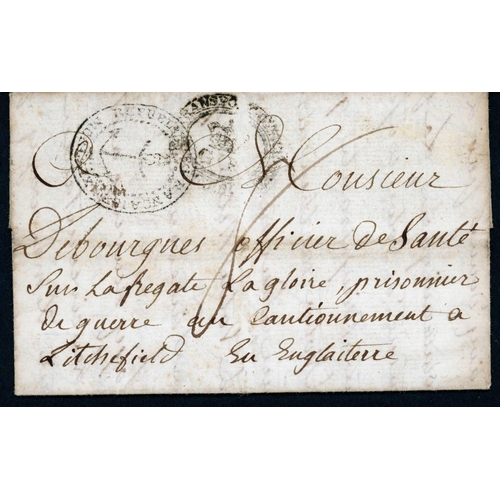 Monsieur
Debourgnes officier de Santé
Sur La fregate La gloire, prisonnier
de guerre au Cautionnement a
Litchefield En Englaiterre